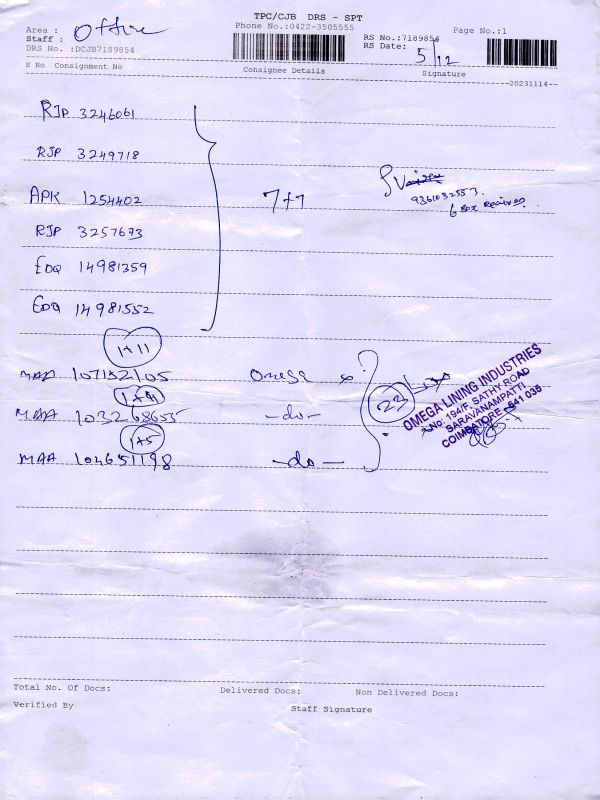 TPC/CJB DRS - SPT
Phone No.:0422-3505555
Area : Office
Staff :
DRS No. :DCJB7189854
RS No.:7189854
RS Date: 5/12
Page No.:1
S No Consignment No Consignee Details Signature
--20231114--
RJP 3246061
RJP 3249718
APK 1254402 7+7
9361032553.
6 Box Received.
RJP 3257673
EDQ 14981359
EDQ 14981552
1+11
MAA 107152105 Omega
1+4
MAA 103268655 -do-
23
1+5
MAA 104651198 -do-
OMEGA LINING INDUSTRIES
No. 194/F, SATHY ROAD
SARAVANAMPATTI
COIMBATORE - 641 035
Total No. Of Docs: Delivered Docs: Non Delivered Docs:
Verified By Staff Signature